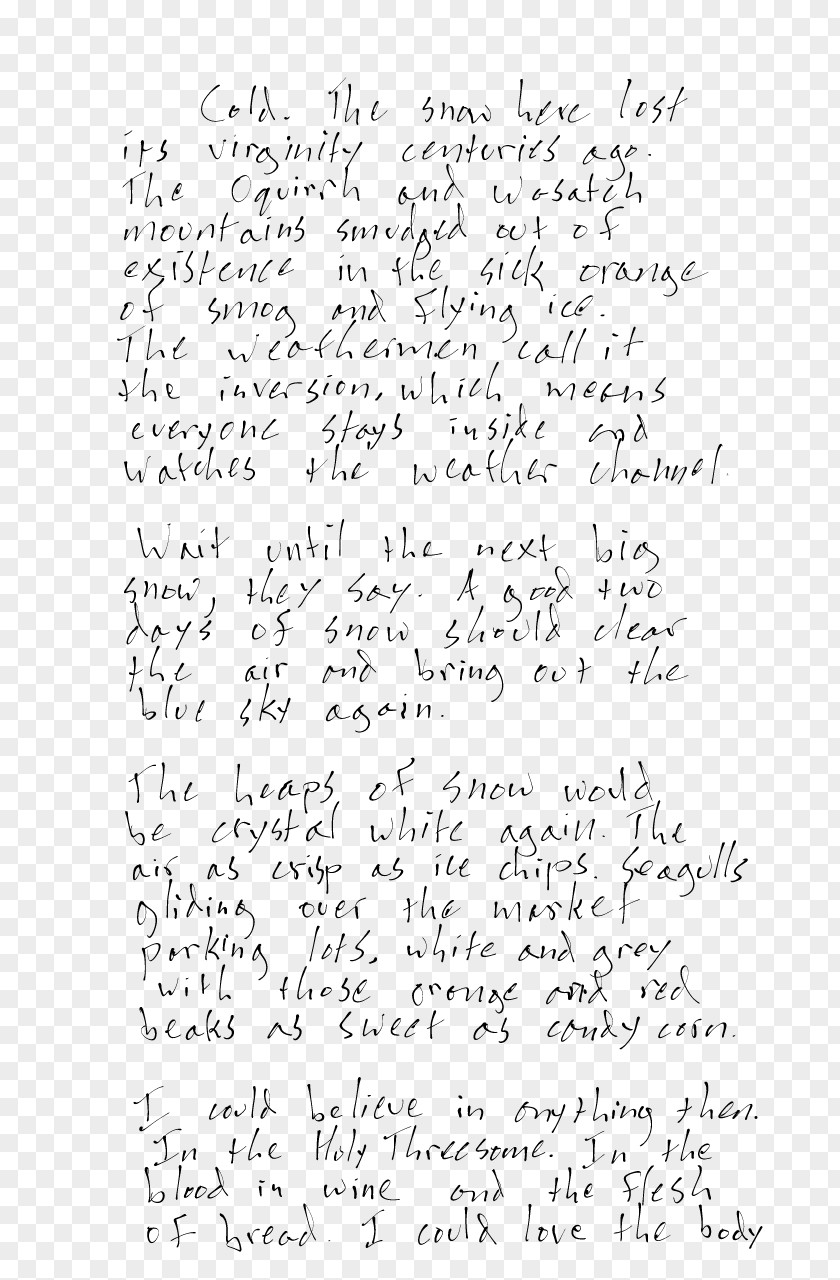 Cold. The snow here lost
its virginity centuries ago.
The Oquirrh and Wasatch
mountains smudged out of
existence in the sick orange
of smog and flying ice.
The weathermen call it
the inversion, which means
everyone stays inside and
watches the weather channel.
Wait until the next big
snow, they say. A good two
days of snow should clear
the air and bring out the
blue sky again.
The heaps of snow would
be crystal white again. The
air as crisp as ice chips. Seagulls
gliding over the market
parking lots, white and grey
with those orange and red
beaks as sweet as candy corn.
I could believe in anything then.
In the Holy Threesome. In the
blood in wine and the flesh
of bread. I could love the body